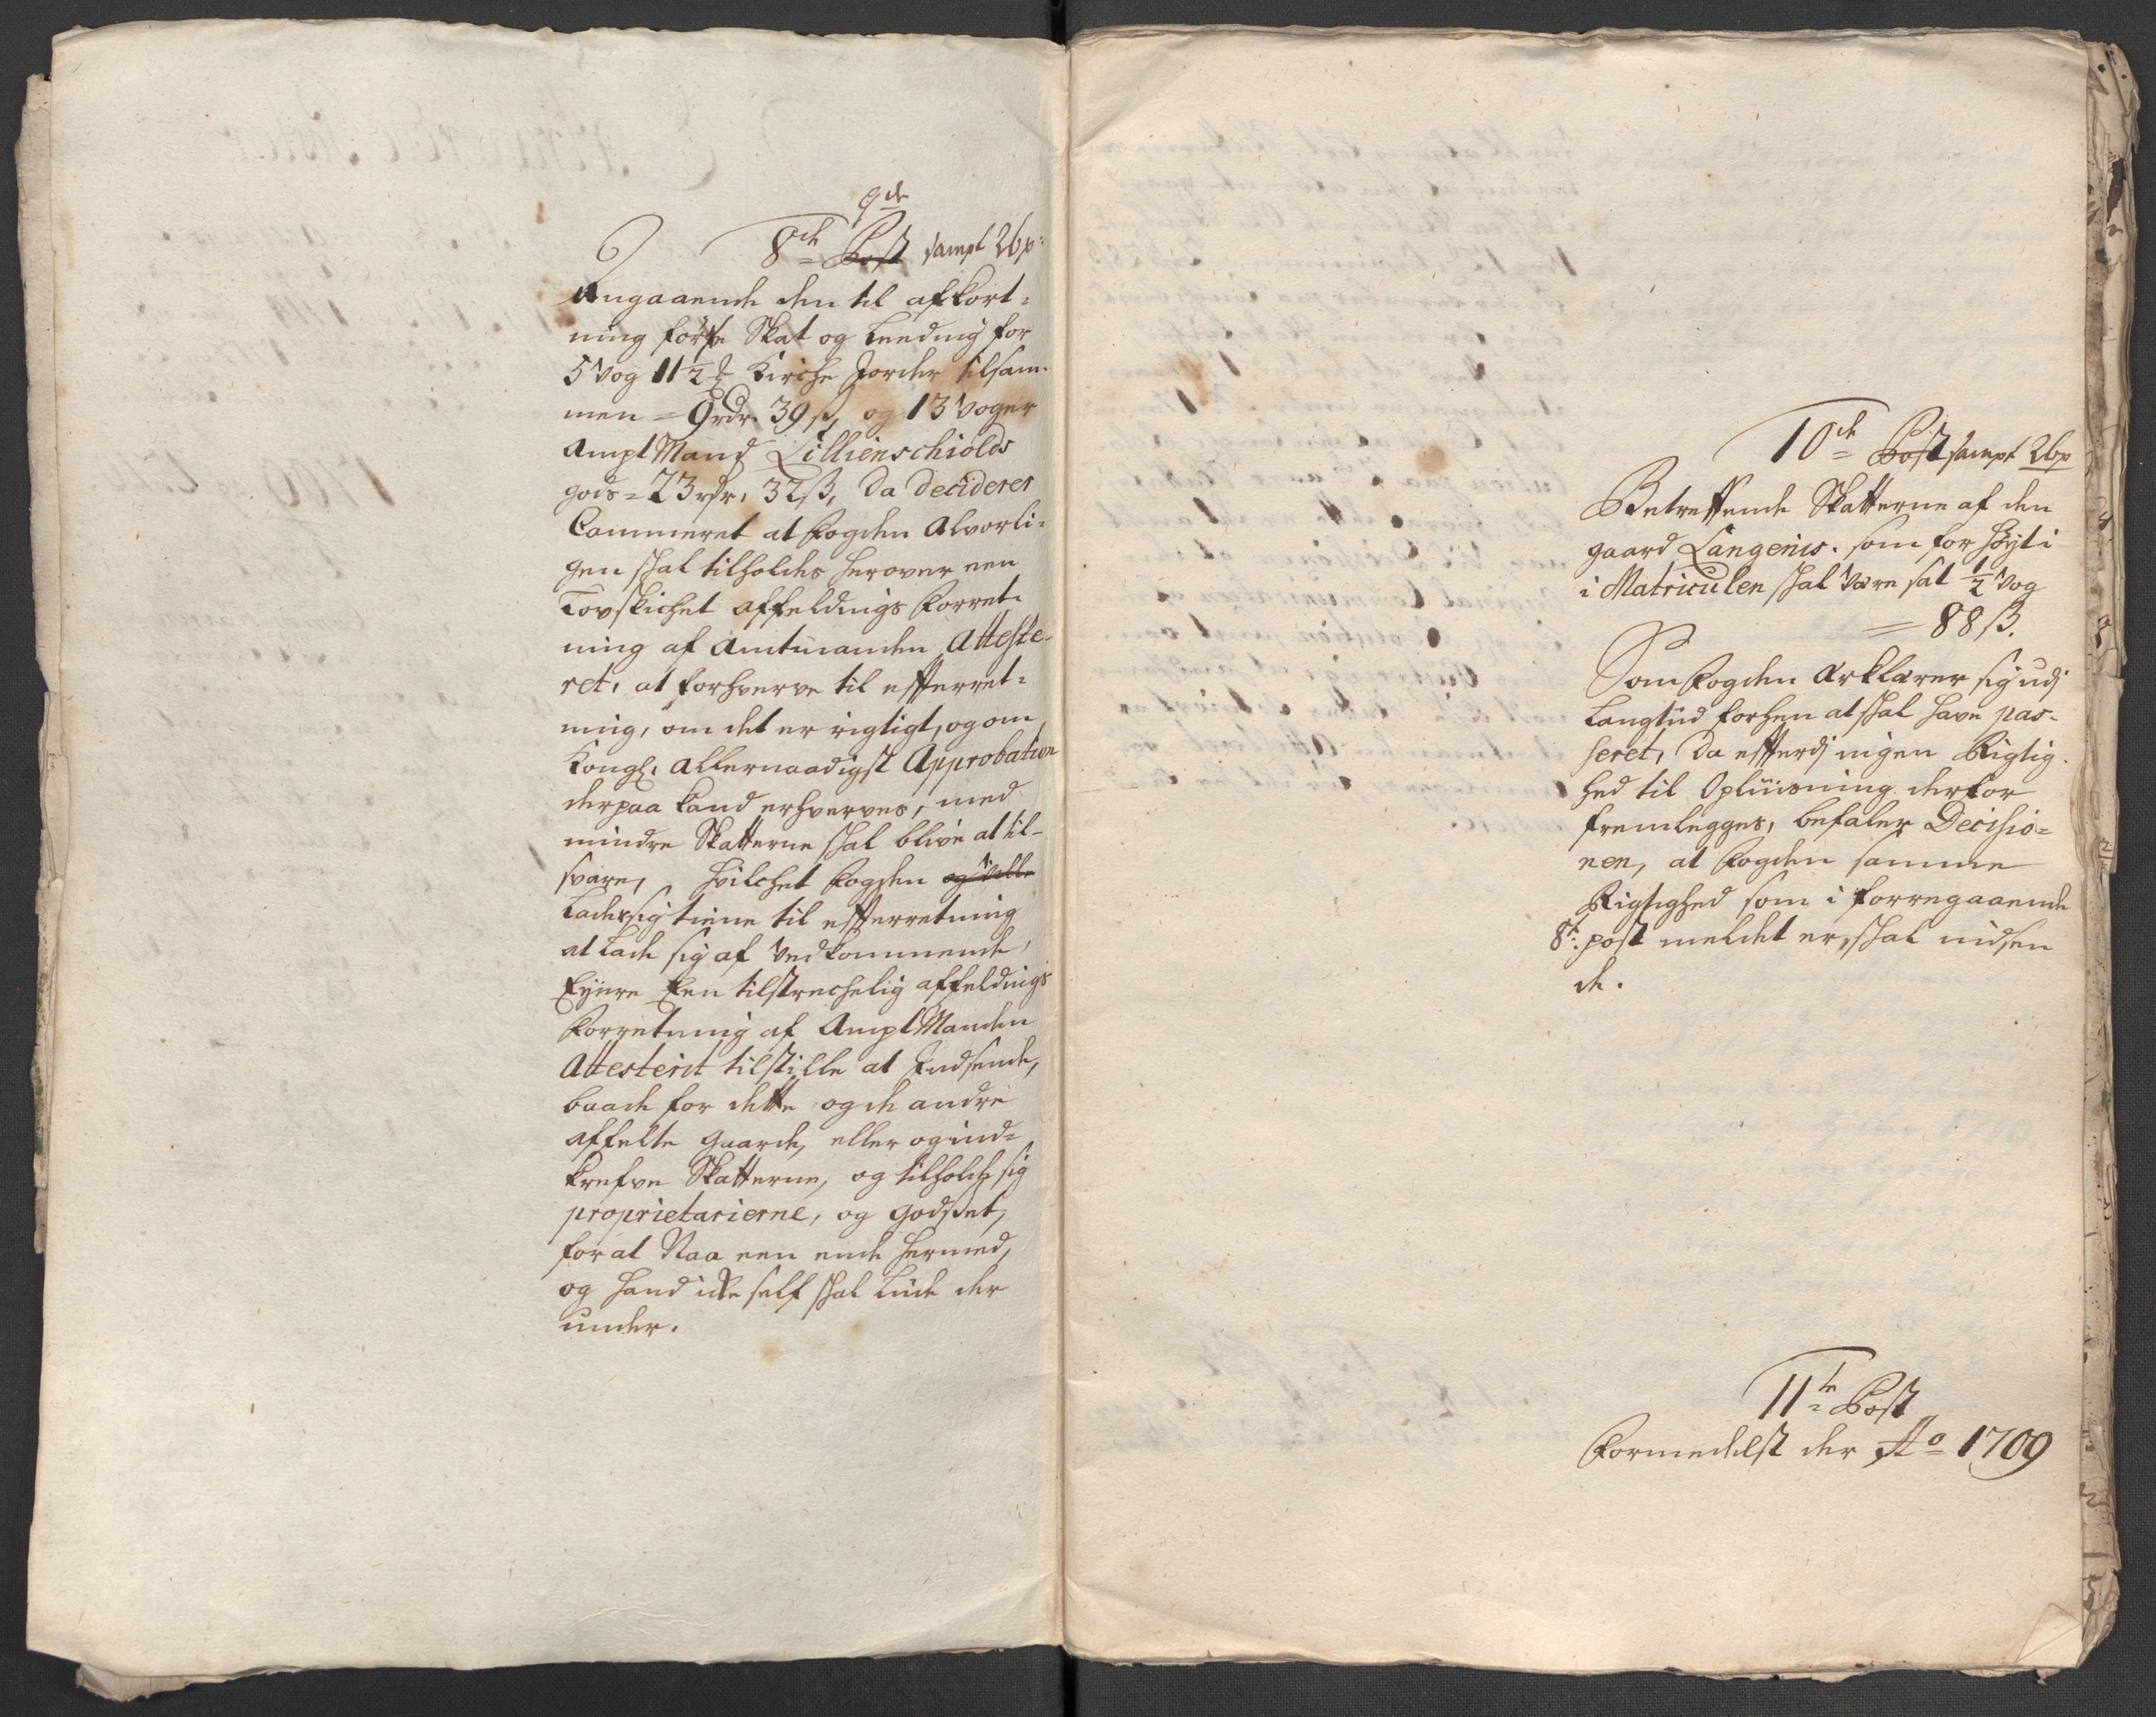 9de
8de Post sampt 26 p:
Angaaende den til afkort-
ning førte Skat og Leeding for
5 Vog 11 1/2 Kirche Jorder tilsam-
men = 9 rdr. 39 ß, og 13 Voger
AmptMand Lillienschiolds
gods = 23 rdr, 32 ß, da Deciderer
Cammeret at Fogden Alvorli-
gen skal tilholdes herover een
Lovskichet affeldings Forret-
ning af Amtmanden Atteste-
ret, at forhverve til efterret-
ning, om det er rigtigt, og om
Kongl. allernaadigst Approbation
derpaa kand erhverves, med
mindre Skatterne skal blive at til-
svare, hvilchet Fogden og ville
Lader sig tiene til efterretning
at Lade sig af Vedkommende
Eyere Een tilstrechelig affeldings
Forretning af AmptManden
Attesterit tilstille at Indsende,
baade for dette og de andre
affelte gaarde, eller og ind-
krefve Skatterne, og tilholde sig
proprietarierne, og godset,
for at Naa een ende hermed,
og hand icke self skal Liide der
under.
10de Post sampt 26 p
Betreffende Skatterne af den
gaard Langenis. som for høyt i
i Matriculen skal være sat 1/2 Vog
= 88 ß.
Som Fogden Erklærer sig udj
Langtiid forhen at skal have pas-
seret, da efterdj ingen Rigtig-
hed til Opliusning derfor
fremlegges, befaler Decisio-
nen, at Fogden samme
Rigtighed som i forregaaende
8t: post meldet er, skal indsen
de.
11te Post
Formedelst der Ao 1709